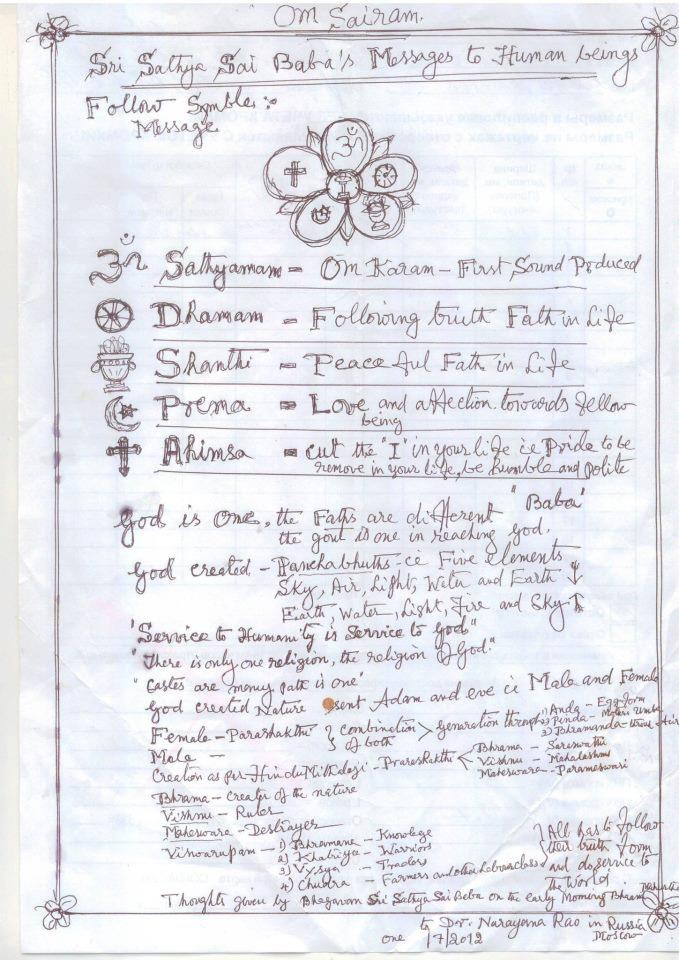 Om Sairam.
Sri Sathya Sai Baba's Messages to Human beings
Follow Symbles :-
Message
ॐ
I
ॐ Sathyamam = Om Karam - First Sound Produced
Dhamam = Following truth Fath in Life
Shanthi = Peaceful Fath in Life
Prema = Love and affection towords fellow
being
Ahimsa = cut the "I" in your life ie Pride to be
remove in your life, be humble and polite
God is One, the Faths are different "Baba"
the goal is one in reaching god.
God created - Panchabhuths - ie Five elements
Sky, Air, Light, Water and Earth ↓
Earth, Water, Light, Fire and Sky ↑
"Service to Humanity is Service to God"
"There is only one religion, the religion of God."
"Castes are many path is one"
God created Nature sent Adam and eve ie Male and Female
Female - Parashakthi } combination > generation through 1) Anda - Egg form
Male - of both 2) Pinda - Moteri Umba
3) Bhramanda -
Creation as per Hindu Mithdogi - Prarashakthi < Bhrama - Sareswathi
Vishnu - Mahalashmi
Maheswara - Parameswari
Bhrama - creater of the nature
Vishnu - Ruler
Maheswara - Destrayer
Viswarupam - 1) Bhramane - Knowlege
2) Khatriya - Warriors
3) Vysya - Traders
4) Chudra - Farmers and other labourclass
} All has to follow
their truth form
and do service to
the World
Thoughts given by Bhagavan Sri Sathya Sai Baba on the early Morning Bhram
to Dr. Narayana Rao in Russia
one 1/7/2012 Moscow